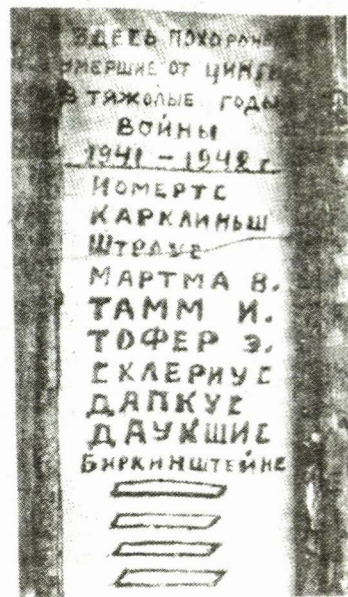 ЗДЕСЬ ПОХОРОНЕ
УМЕРШИЕ ОТ ЦИНГИ
В ТЯЖОЛЫЕ ГОДЫ
ВОЙНЫ
1941 – 1942 г.
НОМЕРТС
КАРКЛИНЬШ
ШТРАУС
МАРТМА В.
ТАММ И.
ТОФЕР Э.
СКЛЕРИУС
ДАПКУС
ДАУКШИС
БИРКИНШТЕЙНС